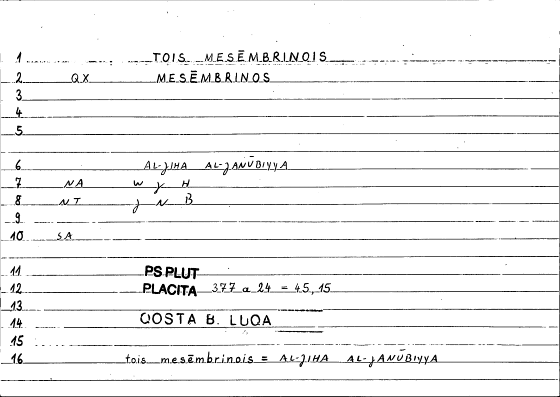 1 TOIS MESĒMBRINOIS
2 QX MESĒMBRINOS
3
4
5
6 AL-ȷIHA AL-ȷANŪBIYYA
7 NA W ȷ H
8 NT ȷ N B
9
10 SA
11 PS.PLUT
12 PLACITA 377 a 24 = 45,15
13
14 QOSTA B. LUQA
15
16 tois mesēmbrinois = AL-ȷIHA AL-ȷANŪBIYYA